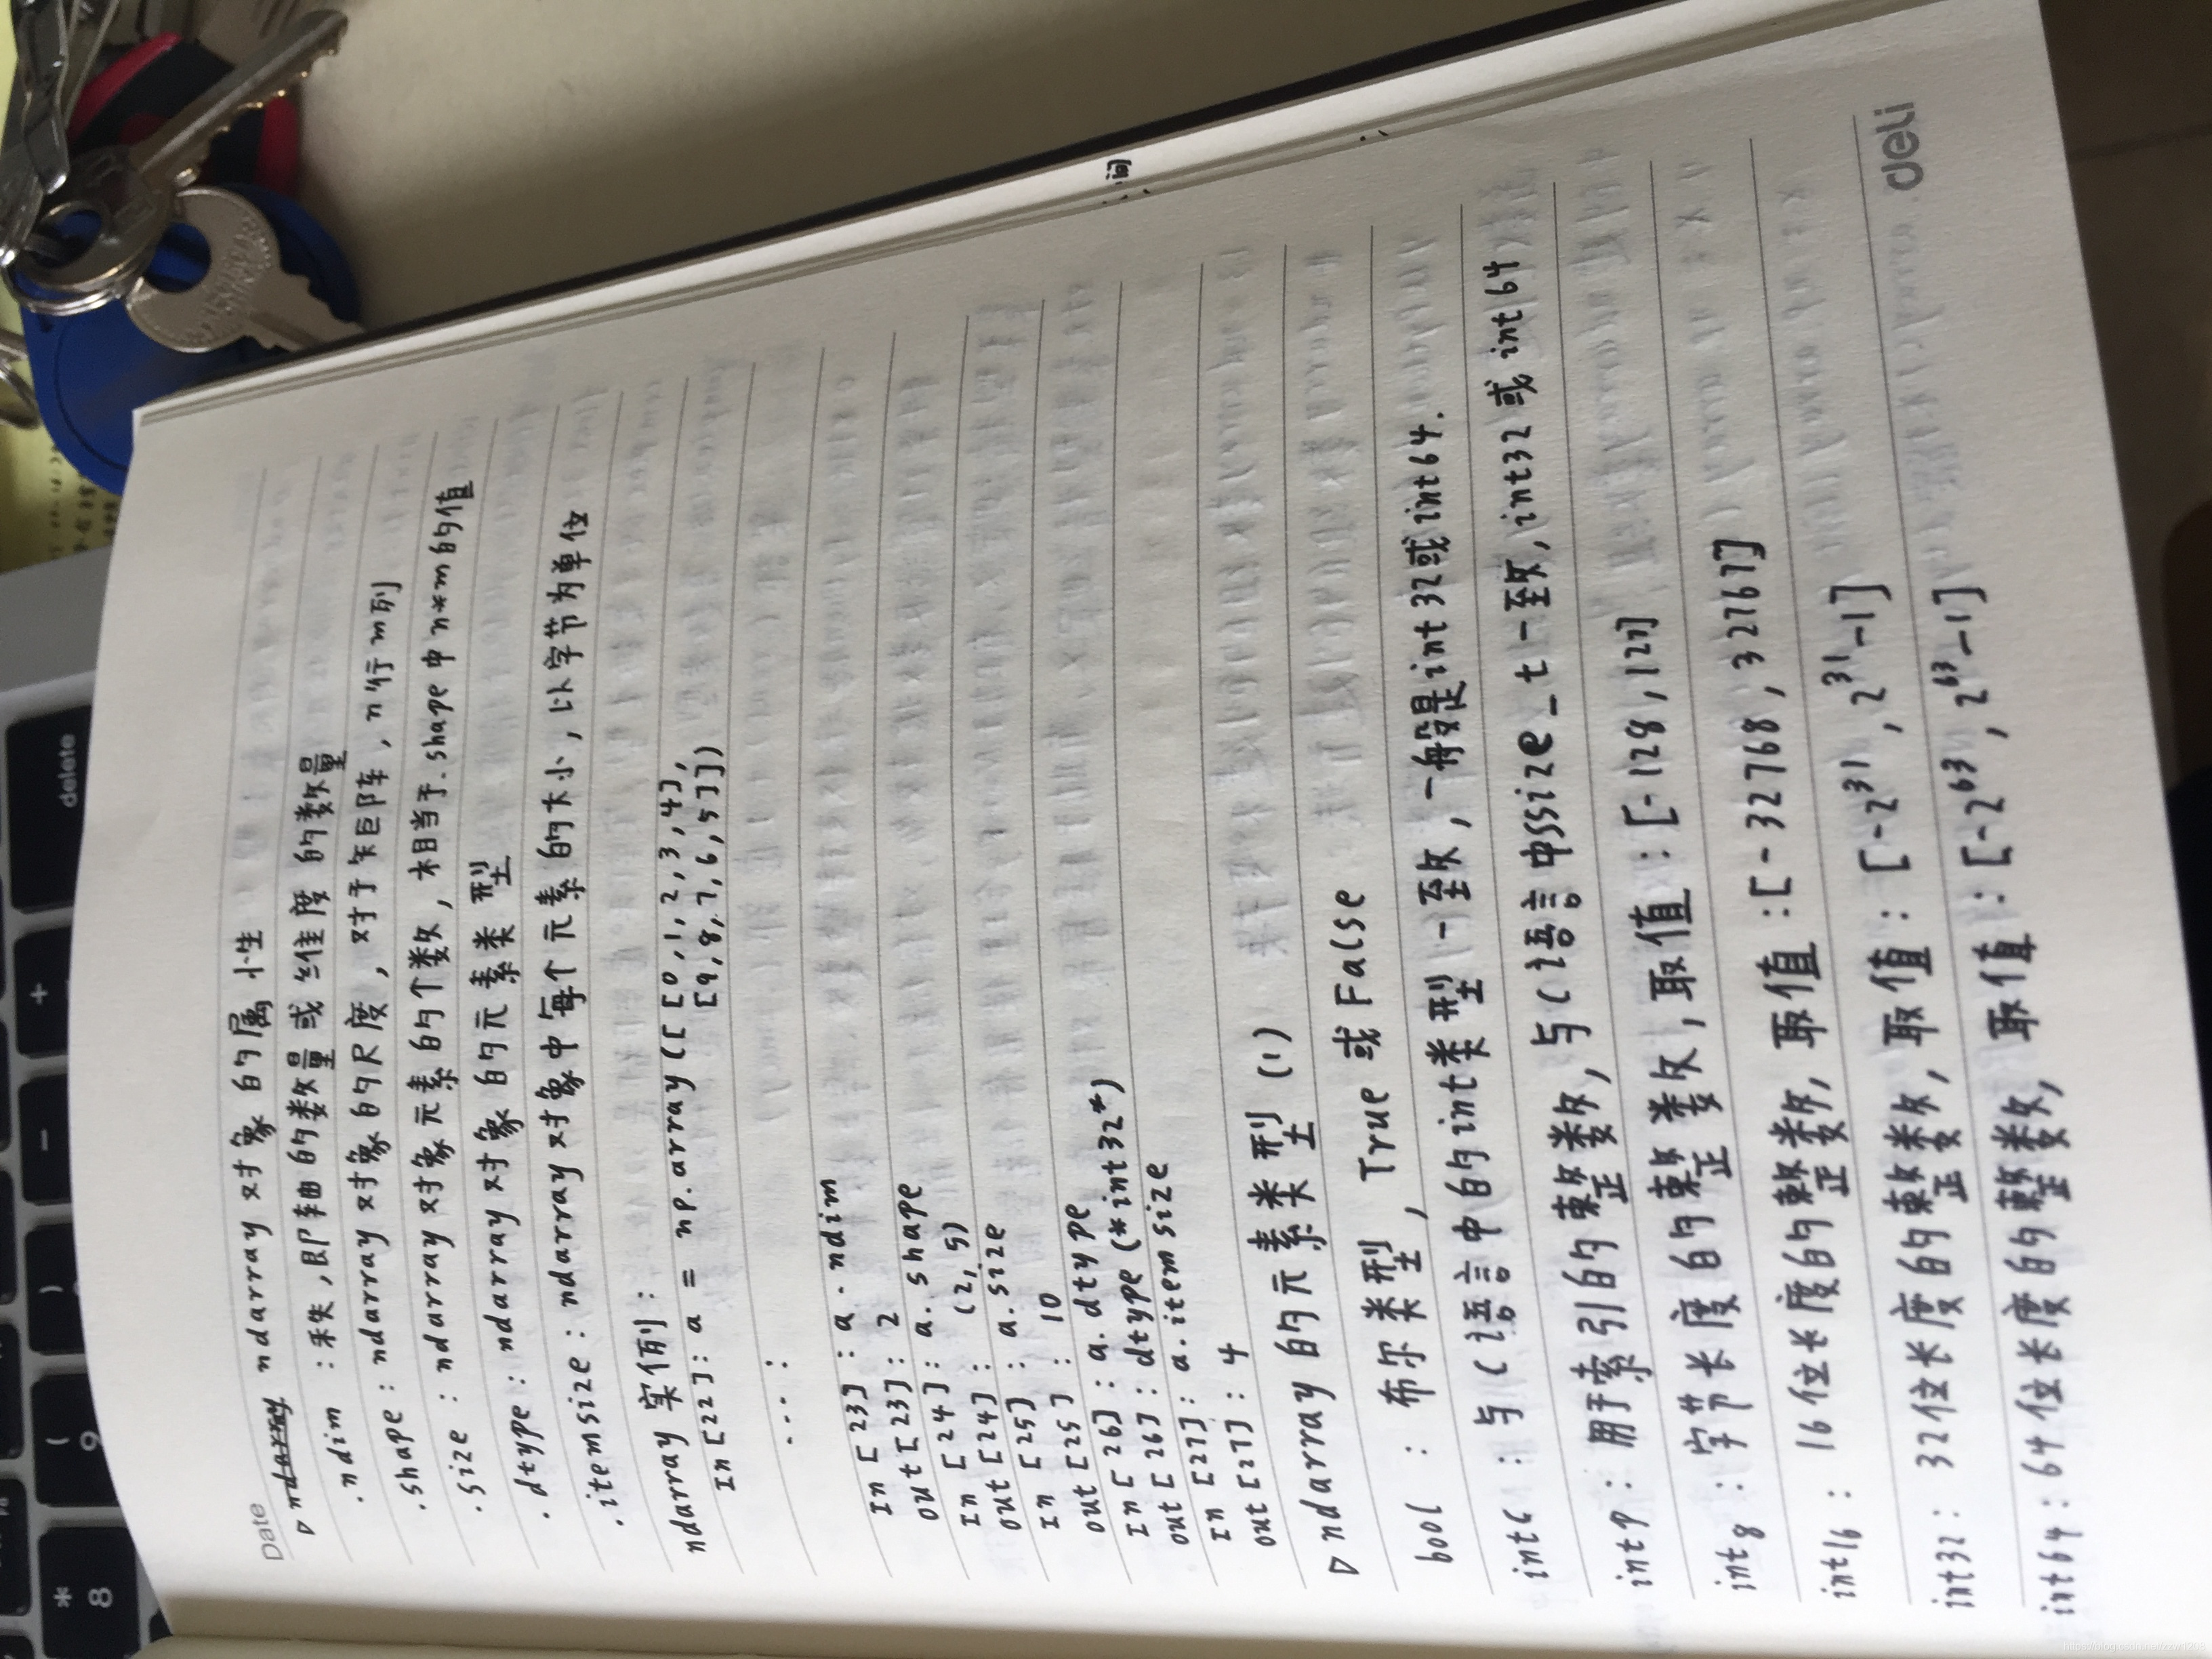 Date
▷ ndarray ndarray 对象的属性
.ndim : 秩,即轴的数量或维度的数量
.shape : ndarray 对象的尺度, 对于矩阵, n行m列
.size : ndarray 对象元素的个数, 相当于.shape中n*m的值
.dtype : ndarray 对象的元素类型
.itemsize : ndarray 对象中每个元素的大小, 以字节为单位
ndarray 实例 :
In [22]: a = np.array([[0,1,2,3,4],
....: [9,8,7,6,5]])
In [23] : a.ndim
out[23]: 2
In [24]: a.shape
out[24]: (2,5)
In [25] : a.size
out[25] : 10
In [26] : a.dtype
out[26] : dtype(*int32*)
In [27] : a.itemsize
out[27] : 4
▷ ndarray 的元素类型 (1)
bool : 布尔类型, True 或 False
intc : 与C语言中的int类型一致, 一般是int32或int64.
intp : 用于索引的整数, 与C语言中ssize_t一致,int32或int64
int8 : 字节长度的整数,取值 : [-128,127]
int16 : 16位长度的整数,取值 : [-32768,32767]
int32 : 32位长度的整数,取值 : [-2^31, 2^31-1]
int64 : 64位长度的整数,取值 : [-2^63, 2^63-1]
deli
delete
+
-
)
(
9
*
8